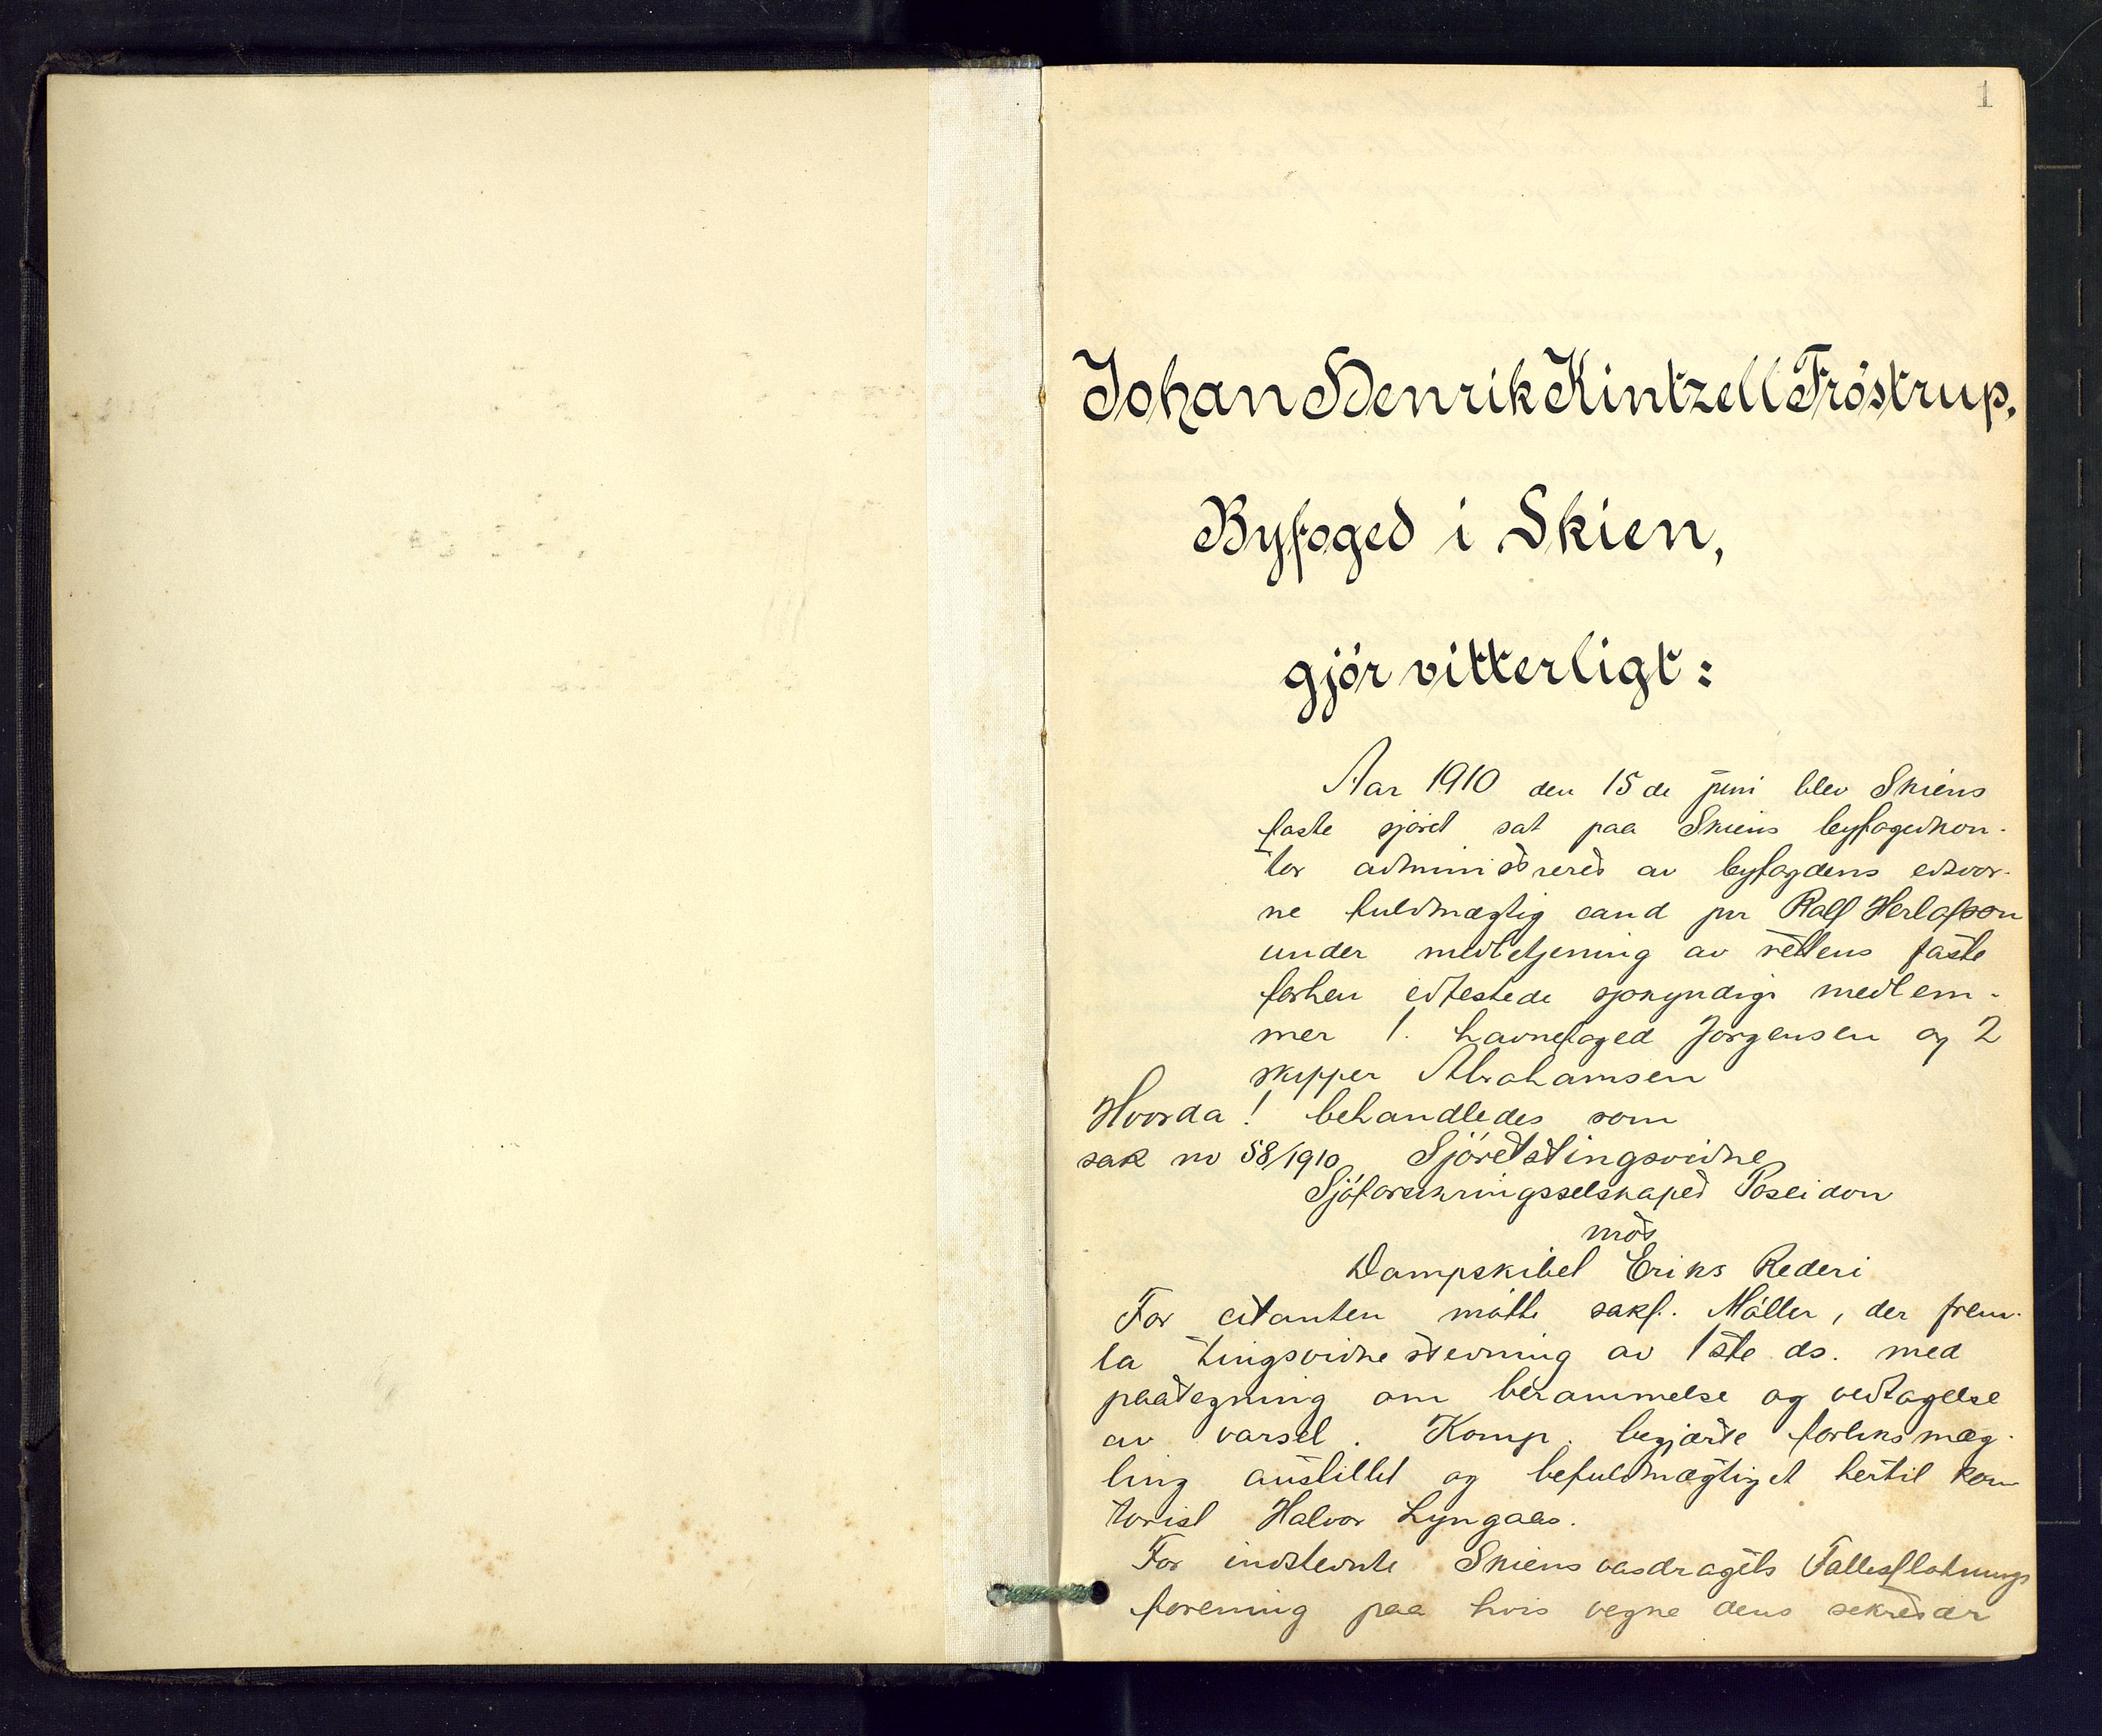 1
Johan Henrik Kintzell Fröstrup,
Byfoged i Skien,
gjör vitterligt:
Aar 1910 den 15de juni blev Skiens
faste sjöret sat paa Skiens byfogedkon-
tor administreret av byfogdens edsvor-
ne fuldmægtig cand jur Ralf Herlofson
under medbetjening av rettens faste
forhen edfestede sjokyndige medlem-
mer 1. havnefoged Jorgensen og 2
skipper Abrahamsen
Hvorda! behandledes som
sak no 58/1910 Sjöretstingsvidne
Sjöforsikringsselskapet Poseidon
mot
Dampskibet Eriks Rederi
For citanten mötte sakf. Möller, der frem-
la tingsvidnestevning av 1ste ds. med
paategning om berammelse og vedtagelse
av varsel. Komp. begjærte forliksmæg-
ling anstillet og befuldmægtiget hertil kon
torist Halvor Lyngaas.
For indstevnte Skiensvasdragets Fællesflotnings
forening paa hvis vegne dens sekretær